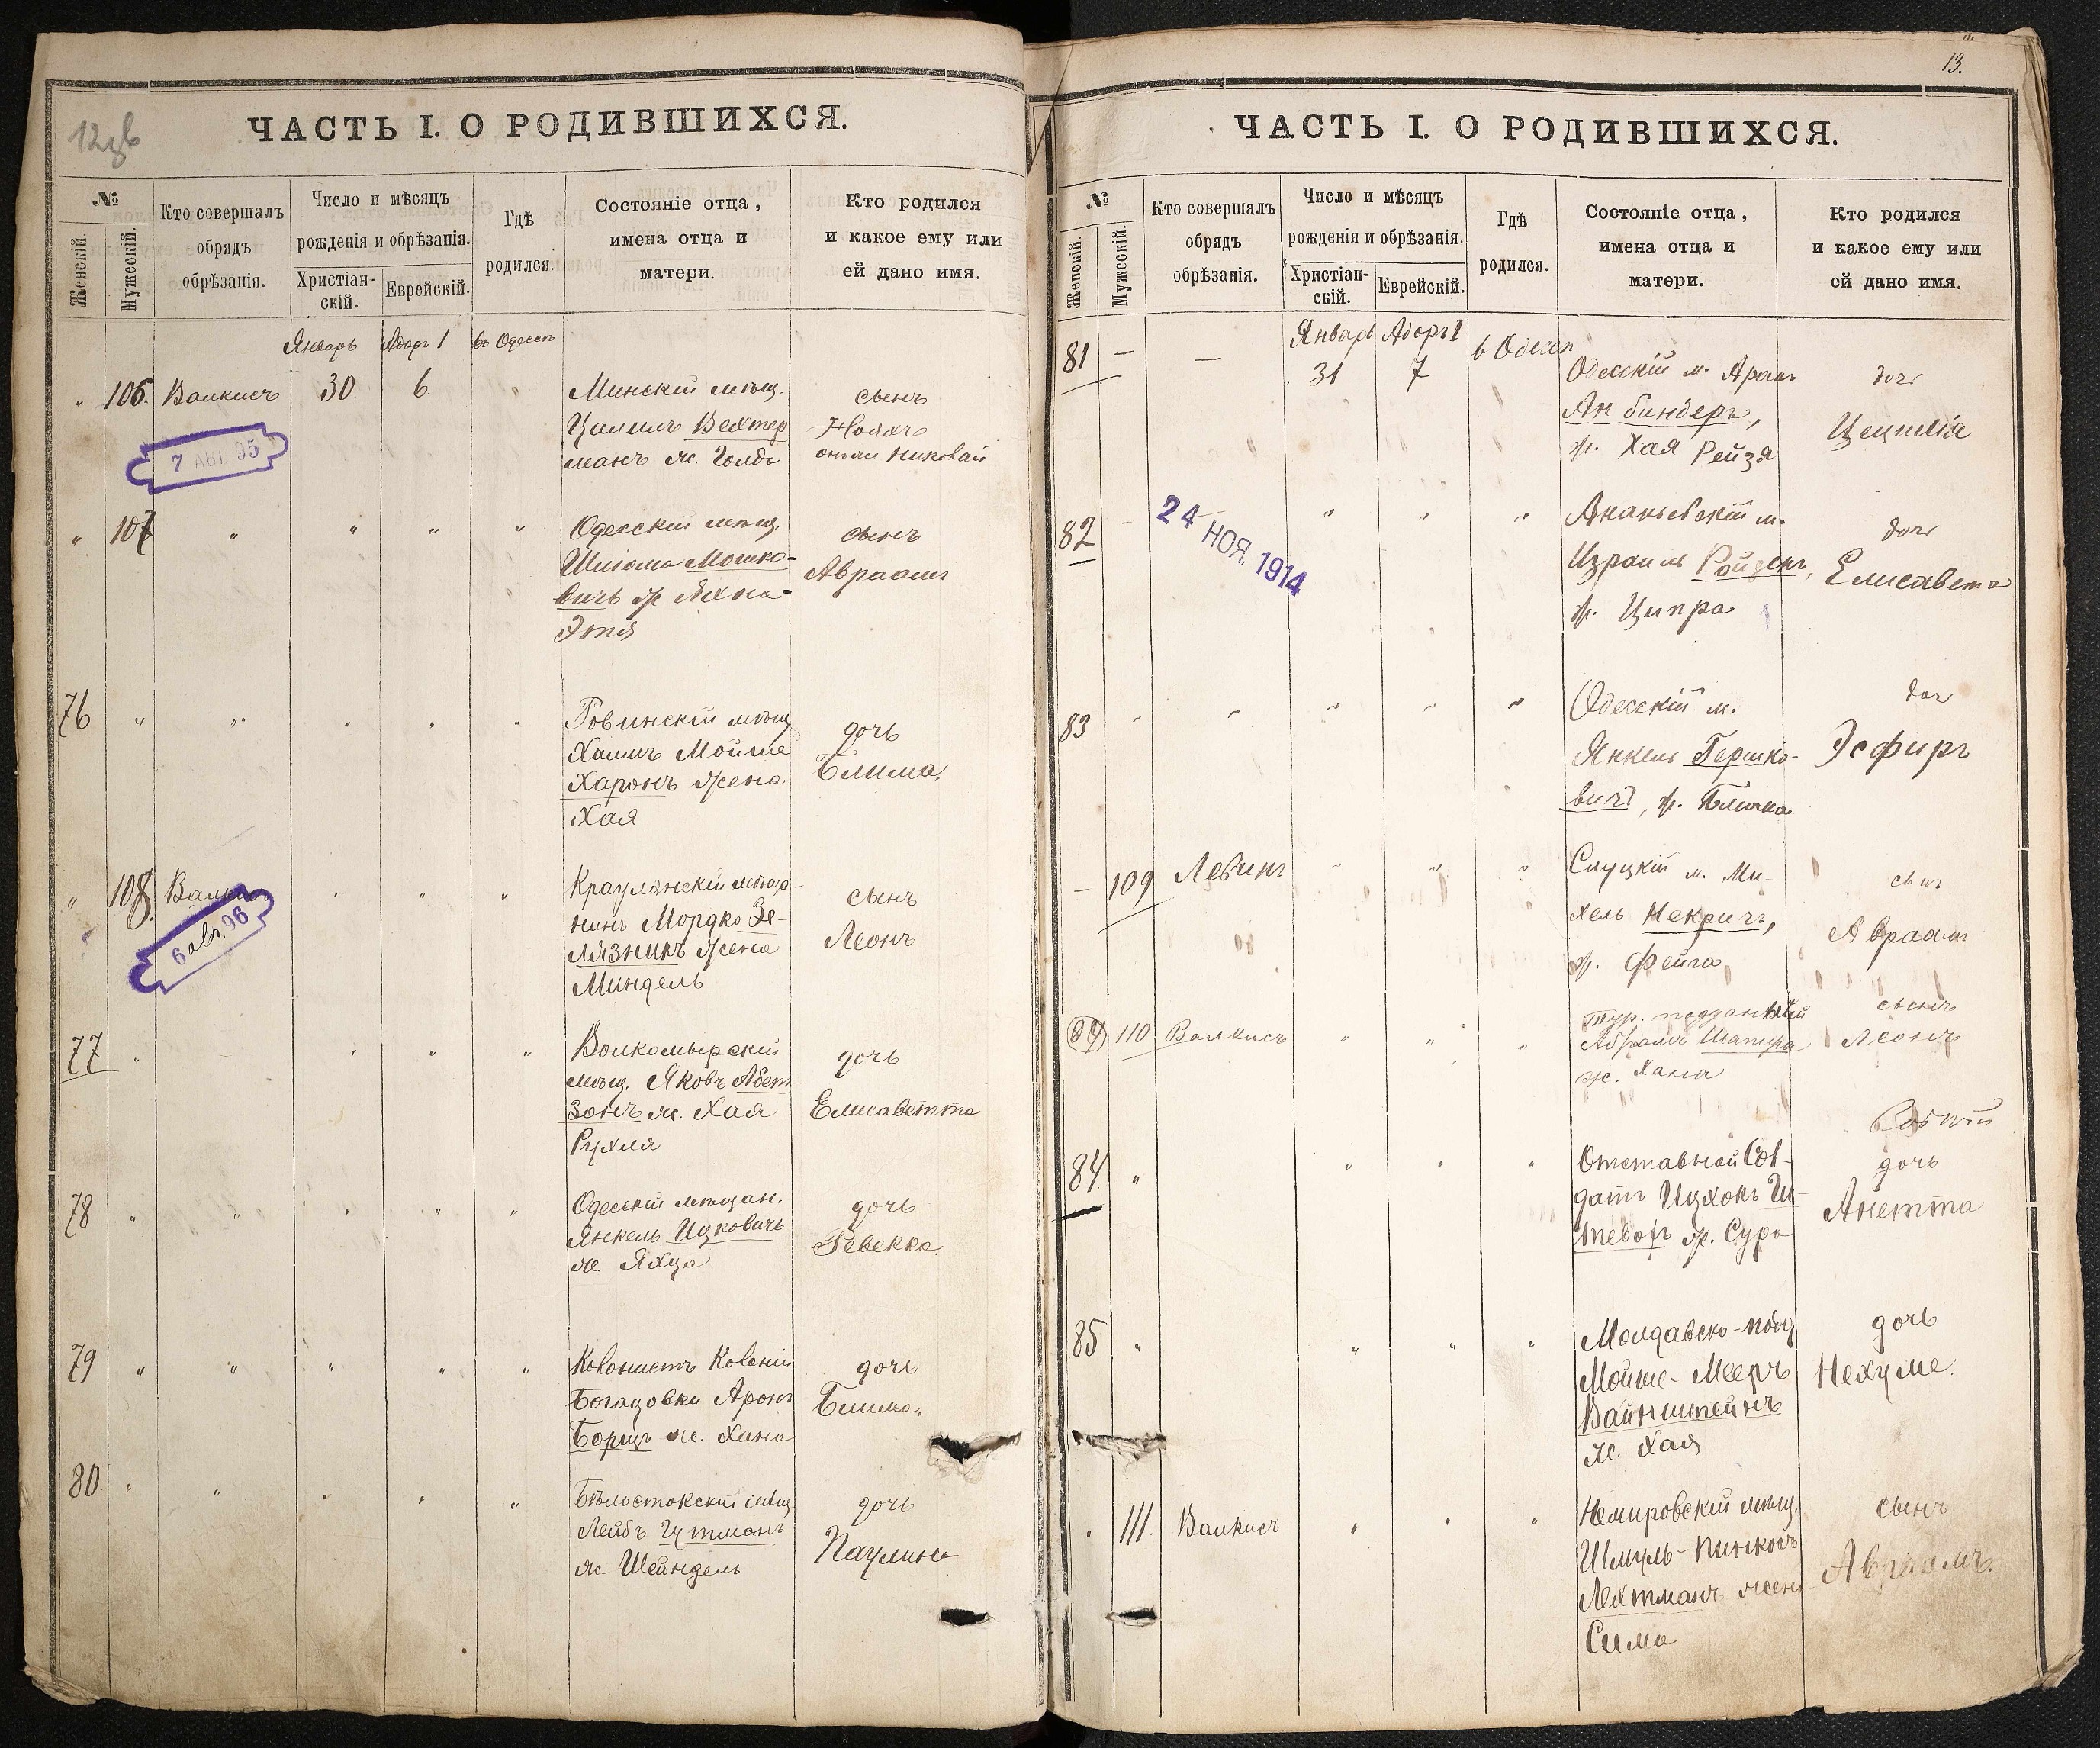 12зв
ЧАСТЬ I. О РОДИВШИХСЯ.
№
Женскій.
Мужескій.
Кто совершалъ
обрядъ
обрѣзанія.
Число и мѣсяцъ
рожденія и обрѣзанія.
Христіан-
скій.
Еврейскій.
Гдѣ
родился.
Состояніе отца,
имена отца и
матери.
Кто родился
и какое ему или
ей дано имя.
Январь Адоръ 1 въ Одессѣ
" 106. Валкисъ 30 6. " Минскій мѣщ. сынъ
Цалель Вехтер Ноахъ
манъ ж. Голда онъ же Николай
7 АВГ. 95
" 107 " " " " Одесскій мѣщ. сынъ
Шліома Мошко- Авраамъ
вичъ ж Яхна-
Этя
76 " " " " " Ровинскій мѣщ
Хаимъ Мойше дочь
Харонъ жена Блима.
Хая
" 108. Валкисъ " " " мѣща- сынъ
нинъ Мордко Зе- Леонъ
лязникъ жена
Миндель
6 авг. 96
77 " " " " Волкомырскій дочь
мѣщ. Яковъ Абет-
зонъ ж. Хая Елисаветта
Рухля
78 " " " " " Одесскій мѣщан. дочь
Янкель Ицковичъ Ревекка.
ж. Яхца
79 " " " " " Колонистъ Колоніи дочь
Богацовки Аронъ Блима.
Борщъ ж. Хана
80 " " " " " Бѣлостокскій мѣщ. дочь
Лейбъ Гутманъ Паулина
ж. Шейндель
13.
ЧАСТЬ I. О РОДИВШИХСЯ.
№
Женскій.
Мужескій.
Кто совершалъ
обрядъ
обрѣзанія.
Число и мѣсяцъ
рожденія и обрѣзанія.
Христіан-
скій.
Еврейскій.
Гдѣ
родился.
Состояніе отца,
имена отца и
матери.
Кто родился
и какое ему или
ей дано имя.
Январь Адоръ I
81 — — 31 7 въ Одессѣ Одесскій м. Аронъ дочь
Ан биндеръ, Цецилія
ж. Хая Рейзя
24 НОЯ. 1914
82 - " " " Ананьевскій м. дочь
Израиль Ройзенъ, Елисавета
ж. Ципра
83 " " " " " Одесскій м. дочь
Янкель Гершко- Эсфирь
вичъ, ж. Блюма
— 109 Левинъ " " " Слуцкій м. Ми- сынъ
хель Некричъ, Авраамъ
ж. Фейга
84 110 Валкисъ " " " Тур. подданный сынъ
Абрамъ Шапира Леонъ
ж. Хана
84 " " " " Отставной Сол- дочь
датъ Ицхокъ Ш- Анетта
ж. Сура
85 " " " " Молдавско-под дочь
Мойше-Мееръ Нехуме.
Вайнштейнъ
ж. Хая
" 111. Валкисъ " " " Немировскій мѣщ. сынъ
Шмуль-Пинкосъ Авраамъ.
Лехтманъ жена
Сима